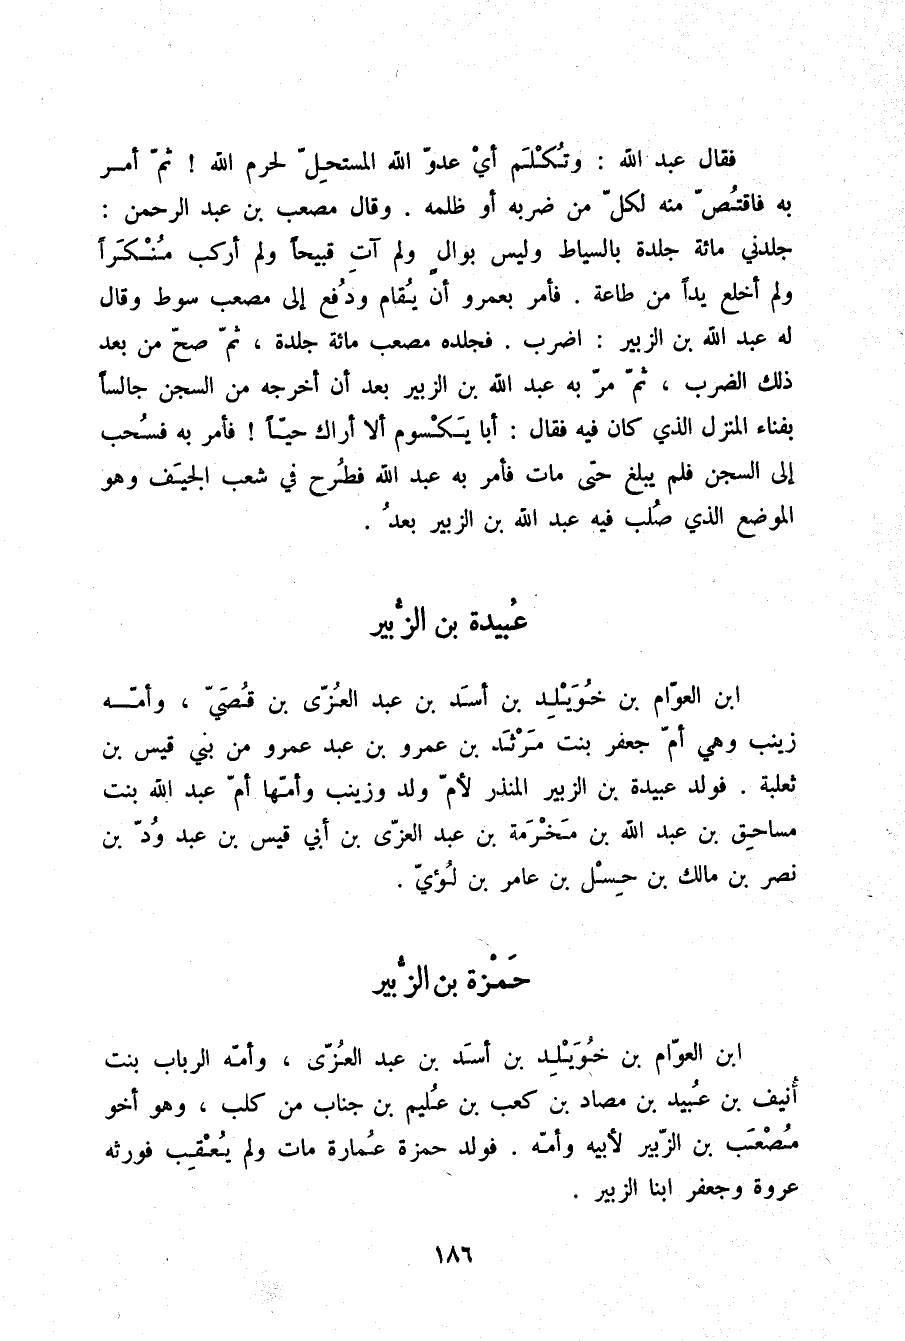 فقال عبد الله : وتُكْلَم أيْ عدوّ الله المستحِلّ لحرم الله ! ثمّ أمر
به فاقتُصّ منه لكلّ من ضربه أو ظلمه . وقال مصعب بن عبد الرحمن :
جلدني مائة جلدة بالسياط وليس بوالٍ ولم آتِ قبيحاً ولم أركب مُنْكَراً
ولم أخلع يداً من طاعة . فأمر بعمرو أن يُقام ودُفع إلى مصعب سوط وقال
له عبد الله بن الزبير : اضرب . فجلده مصعب مائة جلدة ، ثمّ صحّ من بعد
ذلك الضرب ، ثمّ مرّ به عبد الله بن الزبير بعد أن أخرجه من السجن جالساً
بفناء المنزل الذي كان فيه فقال : أبا يَكْسوم ألا أراك حيّاً ! فأمر به فسُحب
إلى السجن فلم يبلغ حتّى مات فأمر به عبد الله فطُرح في شعب الجيَف وهو
الموضع الذي صُلب فيه عبد الله بن الزبير بعدُ .
عُبيدة بن الزُّبير
ابن العوّام بن خُوَيْلِد بن أسَد بن عبد العُزّى بن قُصَيّ ، وأمّه
زينب وهي أمّ جعفر بنت مَرْثَد بن عمرو بن عبد عمرو من بني قيس بن
ثعلبة . فولد عبيدة بن الزبير المنذر لأمّ ولد وزينب وأمّها أمّ عبد الله بنت
مساحِق بن عبد الله بن مَخْرَمة بن عبد العزّى بن أبي قيس بن عبد وُدّ بن
نصر بن مالك بن حِسْل بن عامر بن لُؤيّ .
حَمْزة بن الزُّبير
ابن العوّام بن خُوَيْلِد بن أسَد بن عبد العُزّى ، وأمّه الرباب بنت
أُنيف بن عُبيد بن مصاد بن كعب بن عُليم بن جناب من كلب ، وهو أخو
مُصْعَب بن الزّبير لأبيه وأمّه . فولد حمزة عُمارة مات ولم يُعْقِب فورثه
عروة وجعفر ابنا الزبير .
١٨٦